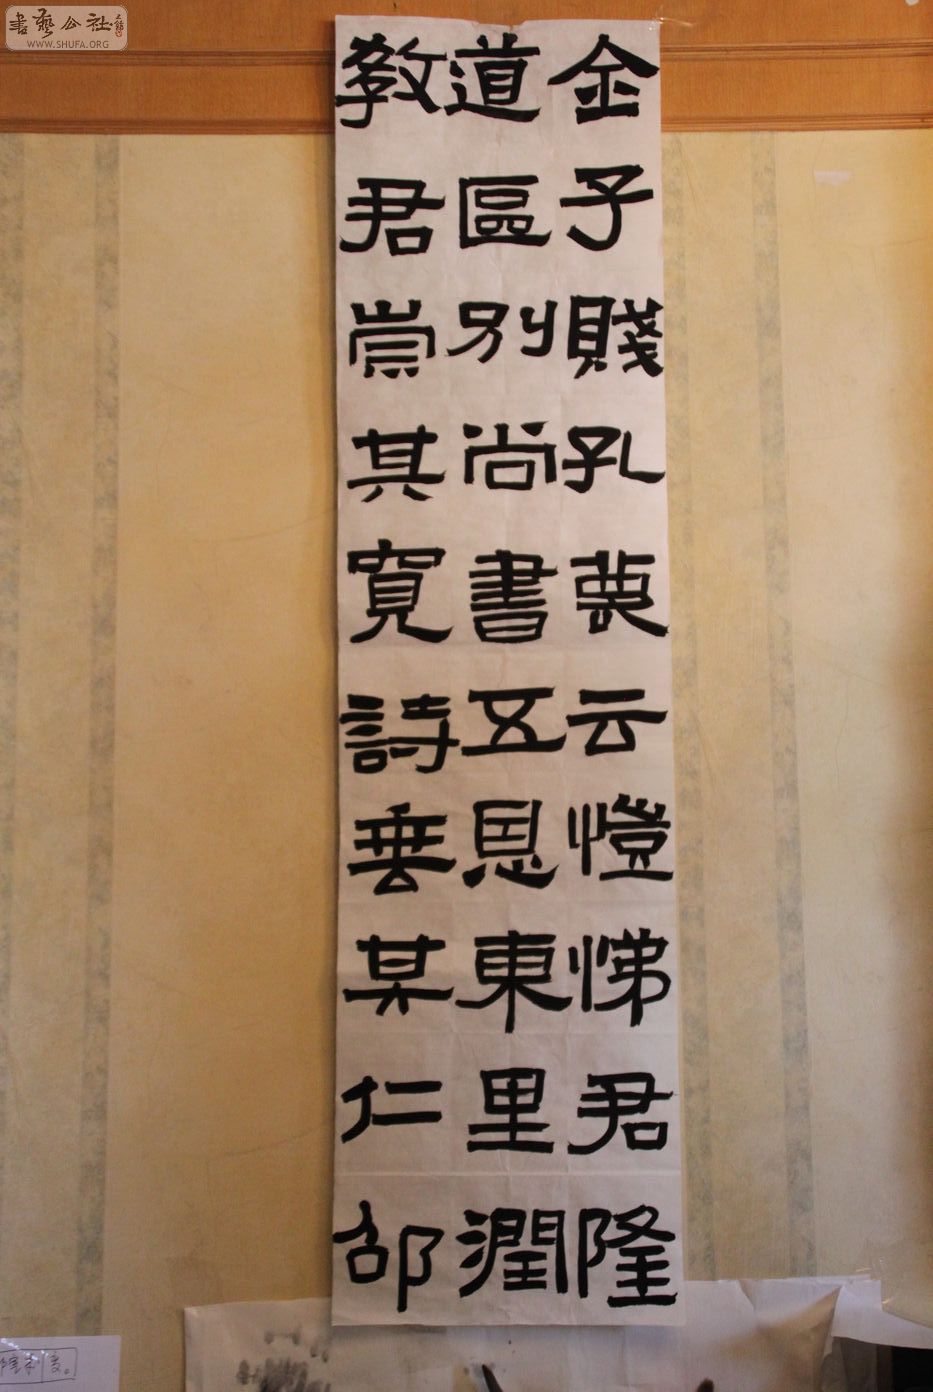 書藝公社
WWW.SHUFA.ORG
金子賤孔蔑云愷悌君隆
道區別尚書五恩東里潤
教君崇其寬詩垂其仁邵